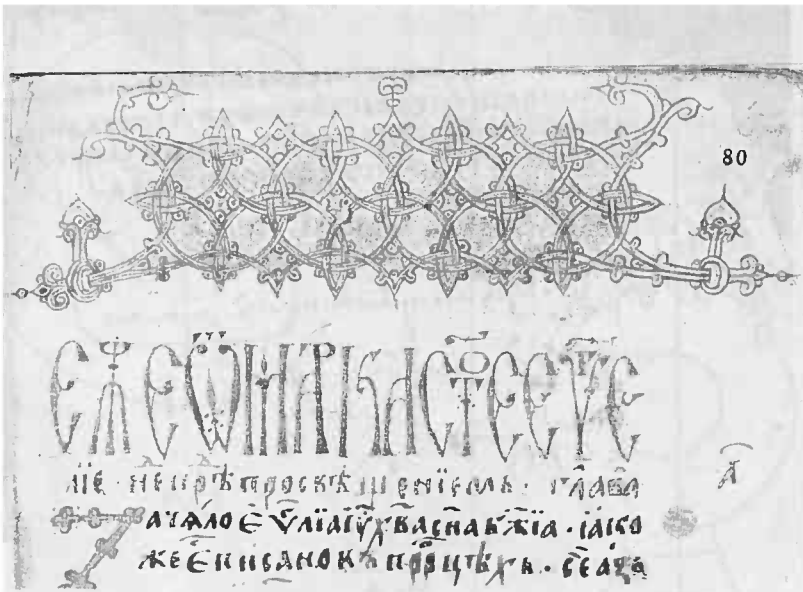 80
ЕЖЕ Ѿ МАРКА СТОЕ ЕѴГЕ
лїе · пръ просвѣщенїемь · глава а҃
Зачѧло еѵⷢ҇лїа іу҃ хв҃а сн҃а бж҃їа · ꙗко
же е҃ писано въ прⷪ҇рцѣхъ · се азъ